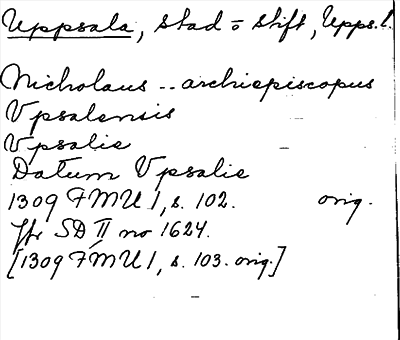 Uppsala, stad o stift, Upps. l.
Nicholaus -- archiepiscopus
Vpsalensis
Vpsalie
Datum Vpsalie
1309 FMU I, s. 102. orig.
Jfr SD II no 1624.
[1309 FMU I, s. 103. orig.]